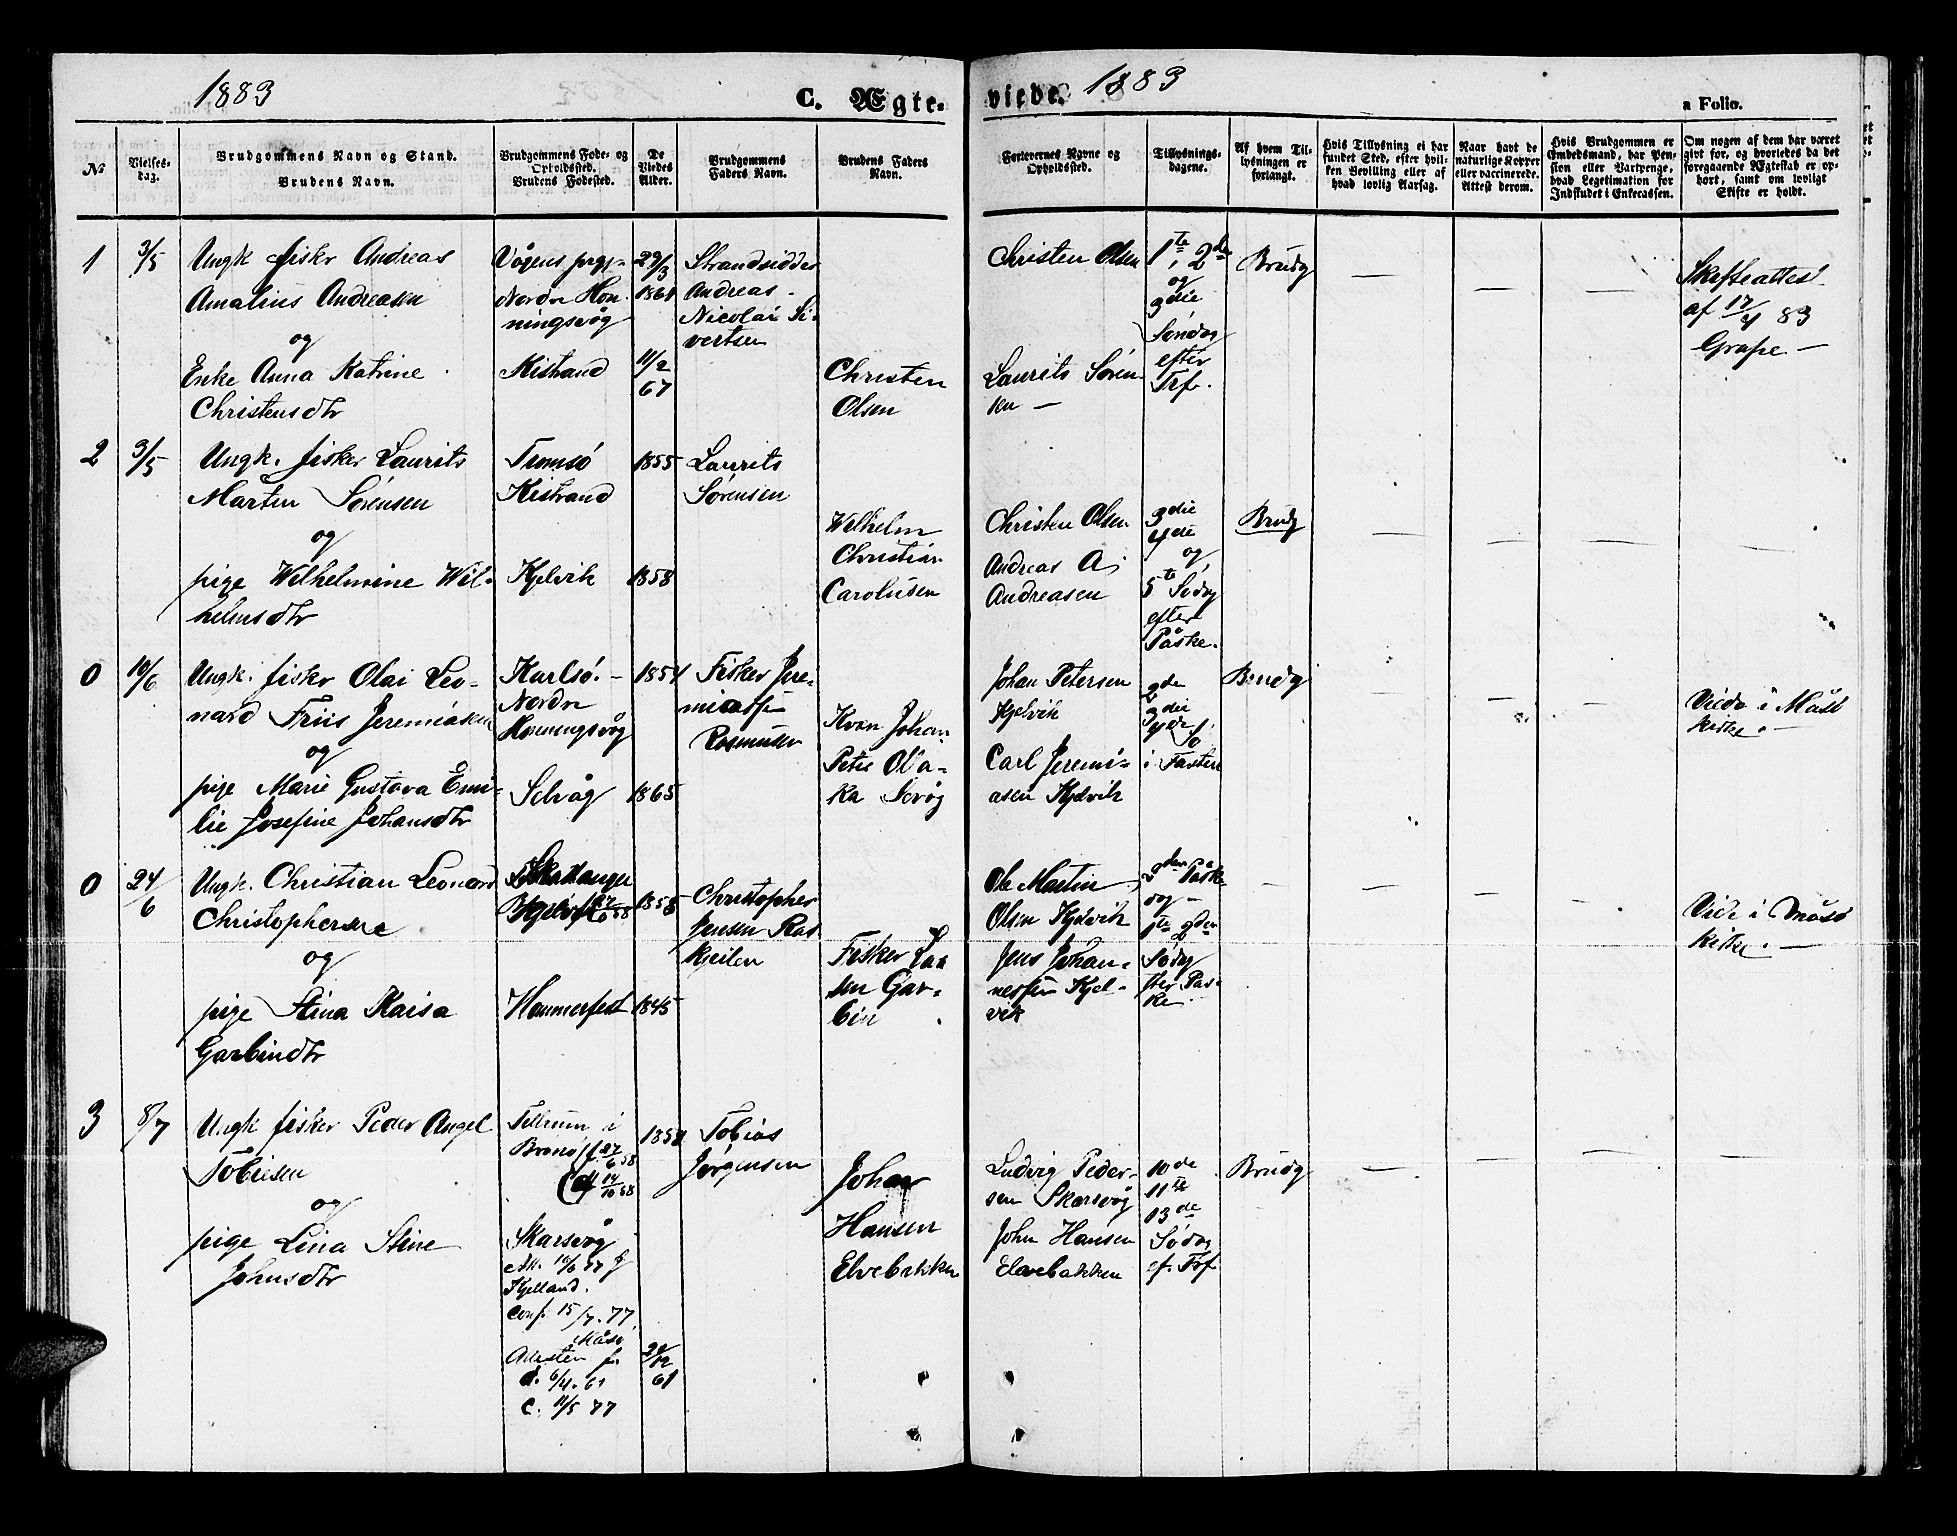 1883
C. Ægte-
viede.
1883
a Folio.
No
Vielses-
dag.
Brudgommens Navn og Stand.
Brudens Navn.
Brudgommens Føde- og
Opholdssted.
Brudens Fødested.
De
Viedes
Alder.
Brudgommens
Faders Navn.
Brudens Faders
Navn.
Forlovernes Navne og
Opholdssted.
Tillysnings-
dagene.
Af hvem Til-
lysningen er
forlangt.
Hvis Tillysning ei har
fundet Sted, efter hvil-
ken Bevilling eller af
hvad lovlig Aarsag.
Naar havt de
naturlige Kopper
eller vaccinerede.
Attest derom.
Hvis Brudgommen er
Embedsmand, har Pen-
sion eller Vartpenge,
hvad Legetimation for
Indskudet i Enkecassen.
Om nogen af dem har været
gift før, og hvorledes da det
foregaaende Ægteskab er op-
hørt, samt om lovligt
Skifte er holdt.
1
3/5
Ungk fisker Andreas
Amalius Andreasen
og
Enke Anna Katrine
Christensdtr
Vågens prgj-
Nordre Hon-
ningsvåg
Kistrand
29/3
1861
11/2
67
Strandsidder
Andreas
Nicolai Si-
vertsen
Christen
Olsen
Christen Olsen
Laurits Søren
sen —
1te, 2den
og
3die
Søndag
efter
Trf.
Brudg
—
—
—
Skifteattest
af 17/4 83
Grape —
2
3/5
Ungk. fisker Laurits
Martin Sørensen
og
pige Wilhelmine Wil-
helmsdtr
Tromsø
Kistrand
Kjelvik
1855
1858
Laurits
Sørensen
Wilhelm
Christian
Carolusen
Christen Olsen
Andreas A
Andreasen
3die
4de
og
5te Sødag
efter
Påske.
Brudg
—
—
—
—
0
10/6
Ungk. fisker Olai Leo-
nard Friis Jeremiasen
og
pige Marie Gustava Emi-
lie Josefine Johansdtr
Karlsø. -
Nordre
Honningsvåg
Selvåg
1854
1865
Fisker Jere-
miassen
Rasmusen
Kvæn Johan
Petter Ola-
ka Sevåg
Johan Petersen
Kjelvik
Carl Jeremi-
asen Kjelvik
2de
3die
4de Sø
i Fasten
Brudg
—
—
—
Viede i Måsø
kirke. —
0
24/6
Ungk. Christian Leonard
Christophersen
og
pige Stina Kaisa
Garbindtr
Hammerfest
1855
1845
Christopher
Jensen Ras
kjeilen
Fisker La
sen Gar-
bin
Ole Martin
Olsen Kjelvik
Jens Johan-
nessen Kjel-
vik
3den Påske
og
1te 2den
Sødag
efter Pås-
ke.
—
—
—
—
Viede i Måsø
kirke. —
3
8/7
Ungk fisker Peder Angel
Tobiesen
og
pige Lina Stine
Johnsdtr
Tellrum i
Brønø f 27/6 58
14/10 58
Skarsvåg
Att. 10/6 77 f
Kjelland.
conf. 15/7. 77
Måsø
Attesten f.
d. 6/4. 61
c. 11/5 77
1858
24/12
61
Tobias
Jørgensen
Johan
Hansen
Elvebakken
Ludvig Peder-
sen Skarsvåg
John Hansen
Elvebakken
10de
11te
13de
Sødag
ef. Trf
Brudg
—
—
—
—